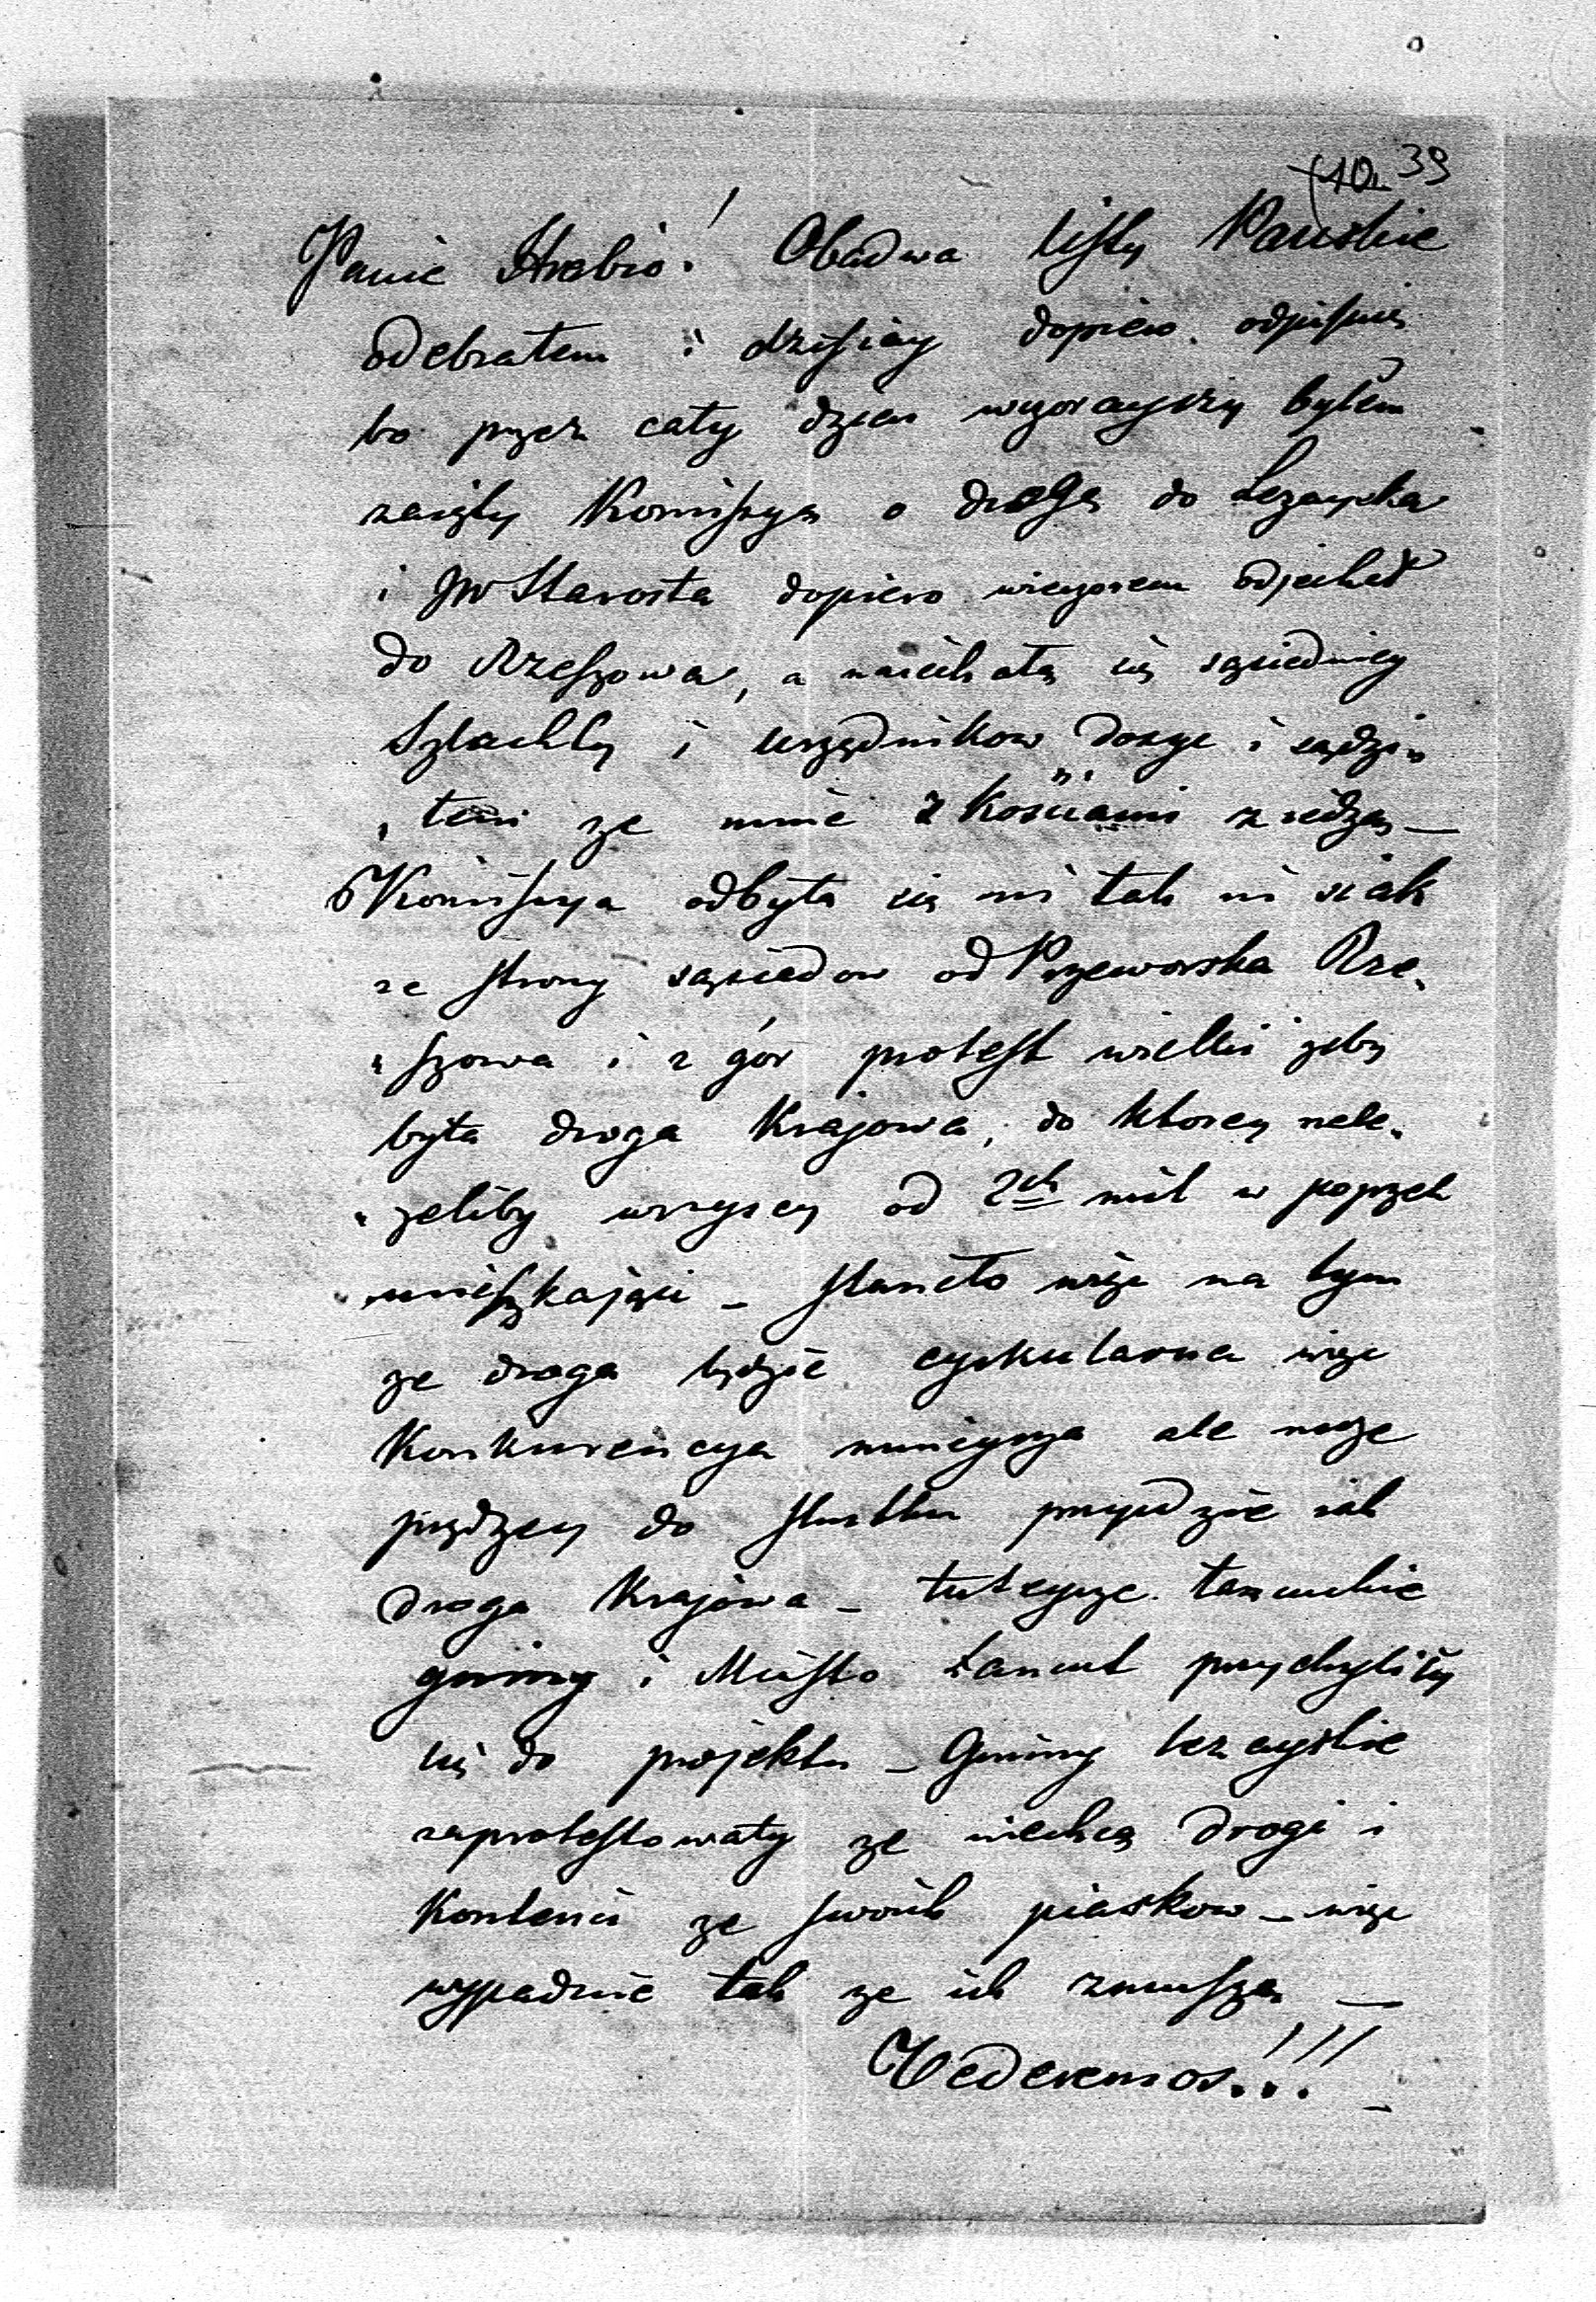 40. 39
Panie Hrabio! Obadwa listy Pańskie
odebrałem i dzisiay dopiero odpisuię
bo przez cały dzien wczorayszy byłem
zaięty Komissyą o drogę do Lezayska
i JW Starosta dopiero wieczorem odjechał
do Rzeszowa, a naiechała się sąsiedniey
Szlachty i urzędnikow dosyc i sądzi„
„łem ze mnie z Kościami ziedzą —
Komissya odbyła się ni tak ni siak
ze strony sąsiadow od Przeworska Rze„
„szowa i z gór protest wielki zeby
była droga Krajowa, do ktorey nale„
„zeliby wszyscy od 2ch mil w poprzek
mieszkający — staneło więc na tym
ze droga będzie cyrkularna więc
Konkurencya mnieysza ale moze
prędzey do skutku przyidzie iak
droga Krajowa — tuteysze łancuckie
gminy i Miasto Łancut przychyliły
się do projektu — Gminy lezayskie
zaprotestowały ze niechcą drogi i
Kontenci ze swoich piaskow — więc
wypadnie tak ze ich zmuszą —
Vederemos!!! —